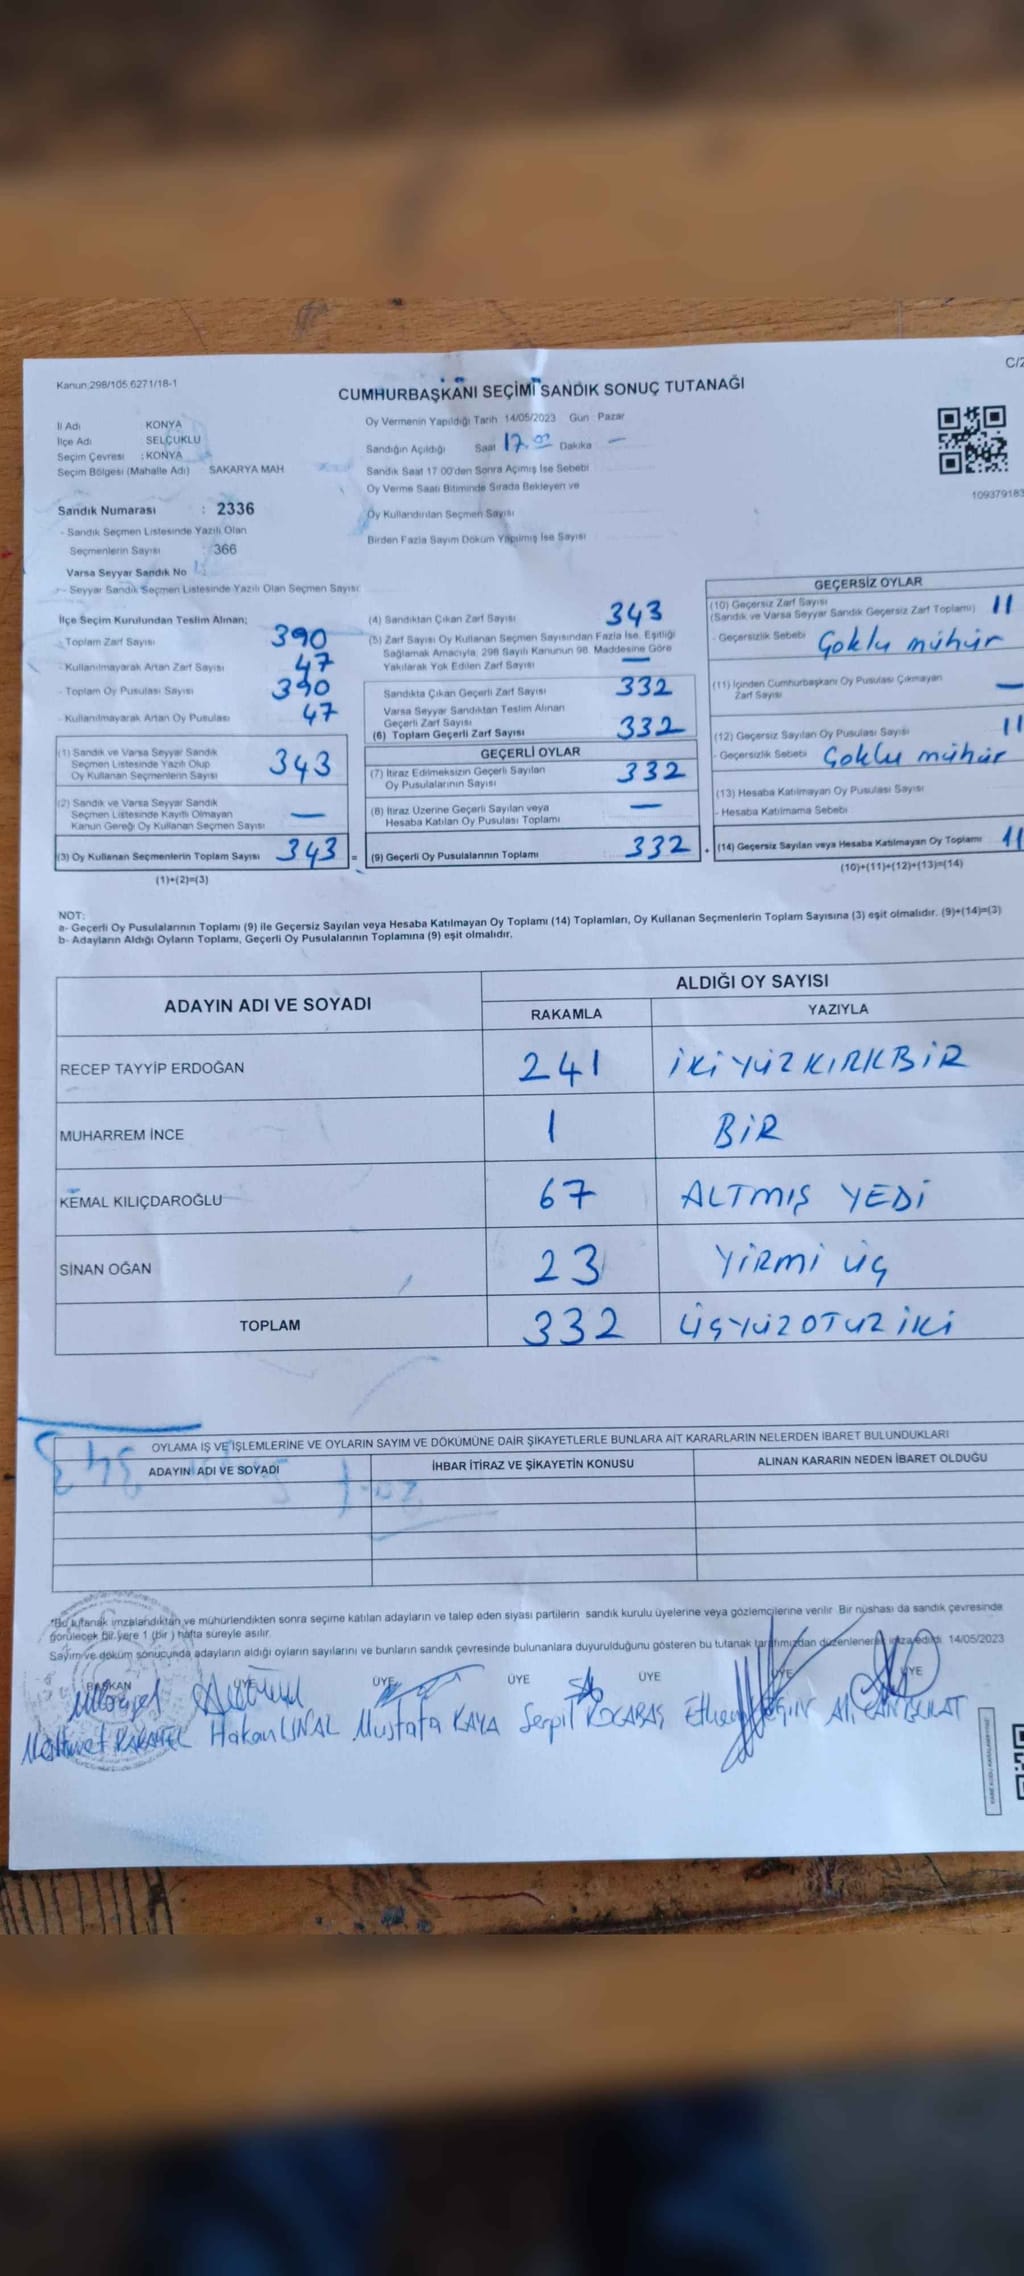 Kanun 298/105 6271/18-1
C/2
CUMHURBAŞKANI SEÇİMİ SANDIK SONUÇ TUTANAĞI
İl Adı KONYA
İlçe Adı SELÇUKLU
Seçim Çevresi : KONYA
Seçim Bölgesi (Mahalle Adı) SAKARYA MAH
Oy Vermenin Yapıldığı Tarih 14/05/2023 Gün Pazar
Sandığın Açıldığı Saat 17.00 Dakika —
Sandık Saat 17 00'den Sonra Açımış İse Sebebi
Oy Verme Saati Bitiminde Sırada Bekleyen ve
Oy Kullandırılan Seçmen Sayısı
Birden Fazla Sayım Döküm Yapılmış İse Sayısı
109379183
Sandık Numarası : 2336
- Sandık Seçmen Listesinde Yazılı Olan
Seçmenlerin Sayısı : 366
Varsa Seyyar Sandık No :
- Seyyar Sandık Seçmen Listesinde Yazılı Olan Seçmen Sayısı:
İlçe Seçim Kurulundan Teslim Alınan;
- Toplam Zarf Sayısı 390
- Kullanılmayarak Artan Zarf Sayısı 47
- Toplam Oy Pusulası Sayısı 390
- Kullanılmayarak Artan Oy Pusulası 47
(1) Sandık ve Varsa Seyyar Sandık
Seçmen Listesinde Yazılı Olup
Oy Kullanan Seçmenlerin Sayısı 343
(2) Sandık ve Varsa Seyyar Sandık
Seçmen Listesinde Kayıtlı Olmayan
Kanun Gereği Oy Kullanan Seçmen Sayısı —
(3) Oy Kullanan Seçmenlerin Toplam Sayısı 343 =
(1)+(2)=(3)
(4) Sandıktan Çıkan Zarf Sayısı 343
(5) Zarf Sayısı Oy Kullanan Seçmen Sayısından Fazla İse, Eşitliği
Sağlamak Amacıyla, 298 Sayılı Kanunun 98. Maddesine Göre
Yakılarak Yok Edilen Zarf Sayısı —
Sandıkta Çıkan Geçerli Zarf Sayısı 332
Varsa Seyyar Sandıktan Teslim Alınan
Geçerli Zarf Sayısı
(6) Toplam Geçerli Zarf Sayısı 332
GEÇERLİ OYLAR
(7) İtiraz Edilmeksizin Geçerli Sayılan
Oy Pusulalarının Sayısı 332
(8) İtiraz Üzerine Geçerli Sayılan veya
Hesaba Katılan Oy Pusulası Toplamı —
(9) Geçerli Oy Pusulalarının Toplamı 332 +
GEÇERSİZ OYLAR
(10) Geçersiz Zarf Sayısı
(Sandık ve Varsa Seyyar Sandık Geçersiz Zarf Toplamı) 11
- Geçersizlik Sebebi Çoklu mühür
(11) İçinden Cumhurbaşkanı Oy Pusulası Çıkmayan
Zarf Sayısı —
(12) Geçersiz Sayılan Oy Pusulası Sayısı 11
- Geçersizlik Sebebi Çoklu mühür
(13) Hesaba Katılmayan Oy Pusulası Sayısı
- Hesaba Katılmama Sebebi
(14) Geçersiz Sayılan veya Hesaba Katılmayan Oy Toplamı 11
(10)+(11)+(12)+(13)=(14)
NOT:
a- Geçerli Oy Pusulalarının Toplamı (9) ile Geçersiz Sayılan veya Hesaba Katılmayan Oy Toplamı (14) Toplamları, Oy Kullanan Seçmenlerin Toplam Sayısına (3) eşit olmalıdır. (9)+(14)=(3)
b- Adayların Aldığı Oyların Toplamı, Geçerli Oy Pusulalarının Toplamına (9) eşit olmalıdır.
ADAYIN ADI VE SOYADI ALDIĞI OY SAYISI
RAKAMLA YAZIYLA
RECEP TAYYİP ERDOĞAN 241 İKİYÜZKIRKBİR
MUHARREM İNCE 1 BİR
KEMAL KILIÇDAROĞLU 67 ALTMIŞ YEDİ
SİNAN OĞAN 23 YİRMİ ÜÇ
TOPLAM 332 ÜÇYÜZOTUZİKİ
OYLAMA İŞ VE İŞLEMLERİNE VE OYLARIN SAYIM VE DÖKÜMÜNE DAİR ŞİKAYETLERLE BUNLARA AİT KARARLARIN NELERDEN İBARET BULUNDUKLARI
ADAYIN ADI VE SOYADI İHBAR İTİRAZ VE ŞİKAYETİN KONUSU ALINAN KARARIN NEDEN İBARET OLDUĞU
*Bu tutanak imzalandıktan ve mühürlendikten sonra seçime katılan adayların ve talep eden siyasi partilerin sandık kurulu üyelerine veya gözlemcilerine verilir Bir nüshası da sandık çevresinde
görülecek bir yere 1 (bir ) hafta süreyle asılır.
Sayım ve döküm sonucunda adayların aldığı oyların sayılarını ve bunların sandık çevresinde bulunanlara duyurulduğunu gösteren bu tutanak tarafımızdan düzenlenerek imza edildi. 14/05/2023
BAŞKAN ÜYE ÜYE ÜYE ÜYE ÜYE ÜYE
Hakan ÜNAL Mustafa KAYA Serpil KOCABAŞ Ethem Ali CAN